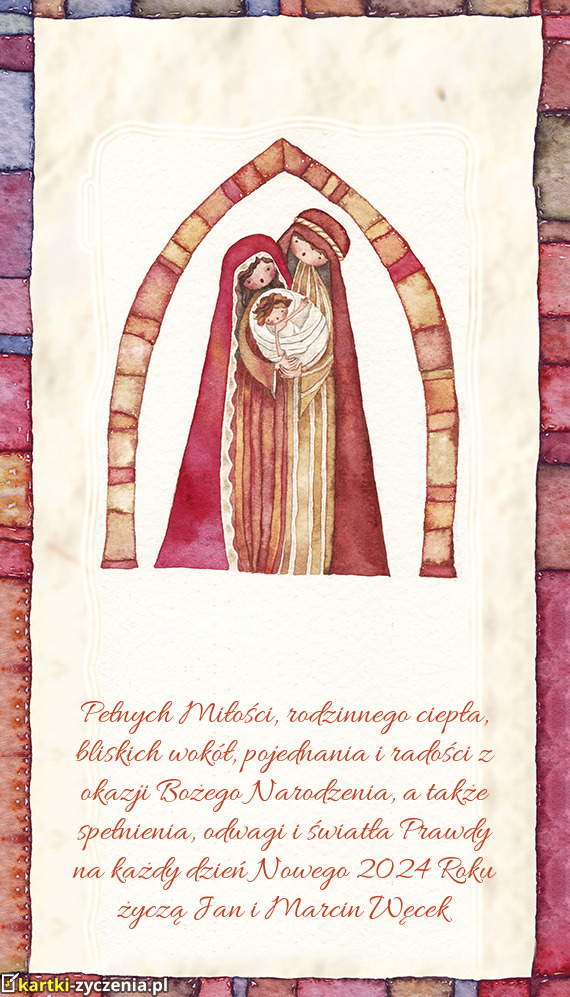 Pełnych Miłości, rodzinnego ciepła,
bliskich wokół, pojednania i radości z
okazji Bożego Narodzenia, a także
spełnienia, odwagi i światła Prawdy
na każdy dzień Nowego 2024 Roku
życzą Jan i Marcin Węcek
kartki-zyczenia.pl